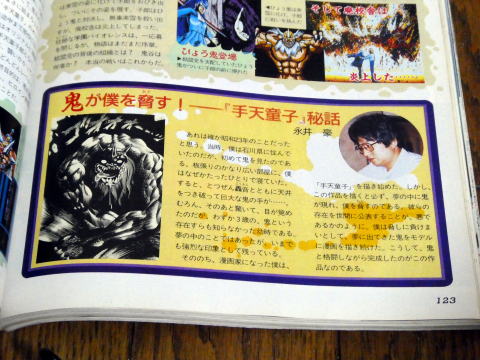 炎上した……
ひょう鬼登場
鬼が僕を脅す！——『手天童子』秘話
永井 豪
あれは確か昭和23年のことだった
と思う。当時、僕は石川県に住んで
いたのだが、初めて鬼を見たのであ
る。板張りのかなり広い部屋に、僕
はなぜかたったひとりで寝ていた。
すると、とつぜん轟音とともに天井
をつき破って巨大な鬼の手が……。
むろん、そのあと驚いて、目が覚め
たのだが、わずか3歳の、鬼という
存在すらも知らなかった幼時である。
夢の中のことではあったが、いまで
も強烈な印象として残っている。
そののち、漫画家になった僕は、
『手天童子』を描き始めた。しかし、
この作品を描くと必ず、夢の中に鬼
が現れ、僕を脅すのである。彼らの
存在を世間に公表することが、悪で
あるかのように。僕は脅しに負けま
いとして、夢に出てきた鬼をモデル
に漫画を描き続けた。こうして、鬼
と格闘しながら完成したのがこの作
品なのである。
123